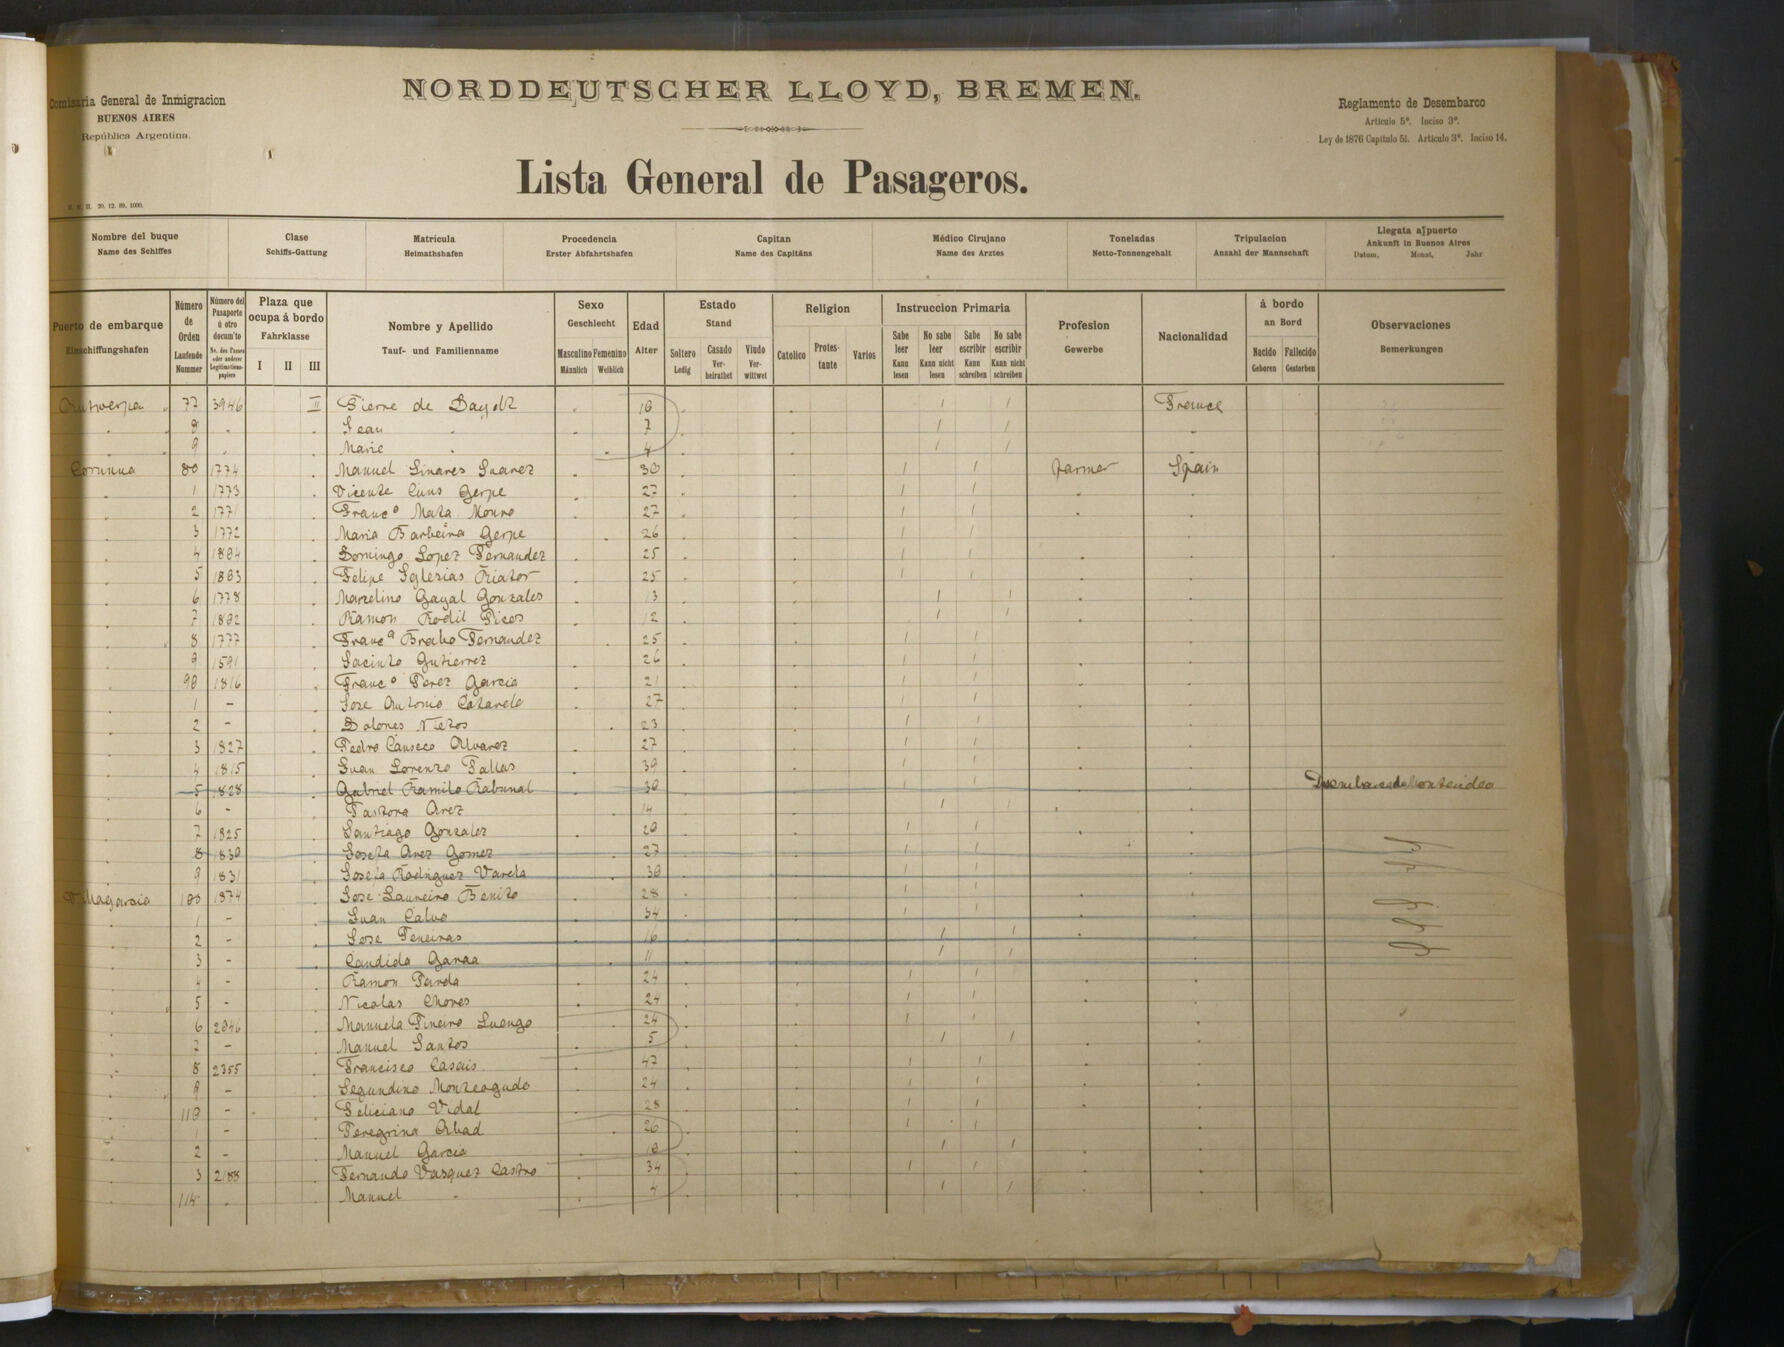 NORDDEUTSCHER LLOYD, BREMEN.
Comisaria General de Inmigracion
BUENOS AIRES
República Argentina.
Reglamento de Desembarco
Articulo 5º. Inciso 3º.
Ley de 1876 Capitulo 51. Articulo 3º. Inciso 14.
Lista General de Pasageros.
20. 12. 89. 1000.
Nombre del buque Clase Matricula Procedencia Capitan Médico Cirujano Toneladas Tripulacion Llegata a puerto
Name des Schiffes Schiffs-Gattung Heimathshafen Erster Abfahrtshafen Name des Capitäns Name des Arztes Netto-Tonnengehalt Anzahl der Mannschaft Ankunft in Buenos Aires
Datum, Monat, Jahr
Puerto de embarque
Einschiffungshafen
Número de Orden
Laufende Nummer
Número del Pasaporte ú otro docum'to
No. des Passes oder anderer Legitimationspapiere
Plaza que ocupa á bordo
Fahrklasse
I II III
Nombre y Apellido
Tauf- und Familienname
Sexo
Geschlecht
Masculino Femenino
Männlich Weiblich
Edad
Alter
Estado
Stand
Soltero Casado Viudo
Ledig Verheirathet Verwittwet
Religion
Catolico Protestante Varios
Instruccion Primaria
Sabe leer No sabe leer Sabe escribir No sabe escribir
Kann lesen Kann nicht lesen Kann schreiben Kann nicht schreiben
Profesion
Gewerbe
Nacionalidad
á bordo
an Bord
Nacido Fallecido
Geboren Gestorben
Observaciones
Bemerkungen
Antwerpa 77 3946 II Pierre de 10 / / France
8 . Jean . 7 / /
9 . Marie 4 / /
Corunna 80 1774 Manuel Linares Suarez 30 / / farmer Spain
1 1773 Vicente Cuns Gerpe 27 / /
2 1771 Francº Mata Mouro 27 / /
3 1772 Maria Barbeira Gerpe 26 / /
4 1804 Domingo Lopez Fernandez 25 / /
5 1803 Felipe Iglesias 25 / /
6 1778 Marcelino Gayal Gonzales 13 / /
7 1802 Ramon Rodil Picos 12 / /
8 1777 Francª Fernandez 25 / /
9 1591 Jacinto Gutierrez 26 / /
90 1816 Francº Perez Garcia 21 / /
1 - Jose Antonio 27 /
2 - Dolores Nietos 23 / /
3 1827 Pedro Canseco Alvarez 27 / /
4 1815 Juan Lorenzo Pallas 39 / /
5 1828 Gabriel Ramilo Rabunal 30 / / Desembarcado Montevideo
6 - Pastora Arez 14 / /
7 1825 Santiago Gonzalez 20 / /
8 1830 Josefa Arez Gomez 27 / /
9 1831 Josefa Rodriguez Varela 30 / /
Villagarcia 100 1874 Jose Laureiro Benito 28 / /
1 - Juan Calvo 34 / /
2 - Jose 16 / /
3 - Candida 11 / /
4 - Ramon 24 / /
5 - Nicolas 24 / /
6 2046 Manuela Pineiro Luengo 24 / /
7 - Manuel Santos 5 / /
8 2355 Francisco Casais 47 / /
9 - Segundino Monteagudo 24 / /
110 - Feliciano Vidal 28 / /
1 - Peregrina Abad 26 / /
2 - Manuel Garcia 10 / /
3 2188 Fernando Vasquez Castro 34 / /
114 . Manuel " 4 / /